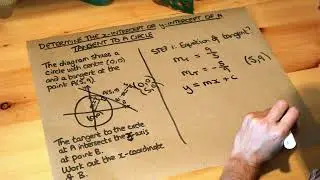 DETERMINE THE x-INTERCEPT OR y-INTERCEPT OF A
TANGENT TO A CIRCLE
The diagram shows a
circle with centre (0,0)
and a tangent at the
point A(5,9).
A(5,9)
(0,0)
The tangent to the circle
at A intersects the x-axis
at point B.
Work out the x-coordinate
of B.
STEP 1: Equation of tangent?
m₁ = 9/5
(5,9)
y = mx + c